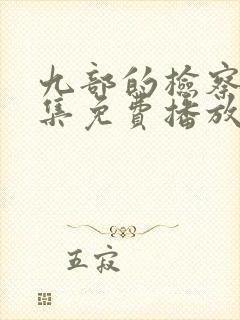 九部的检察
集免费播放
五寂